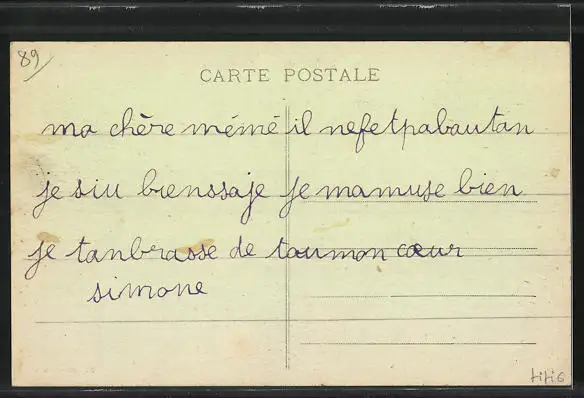 89
CARTE POSTALE
ma chère mémé il nefetpabautan
je siu bienssaje je mamuse bien
je tanbrasse de taumon cœur
simone
titi6